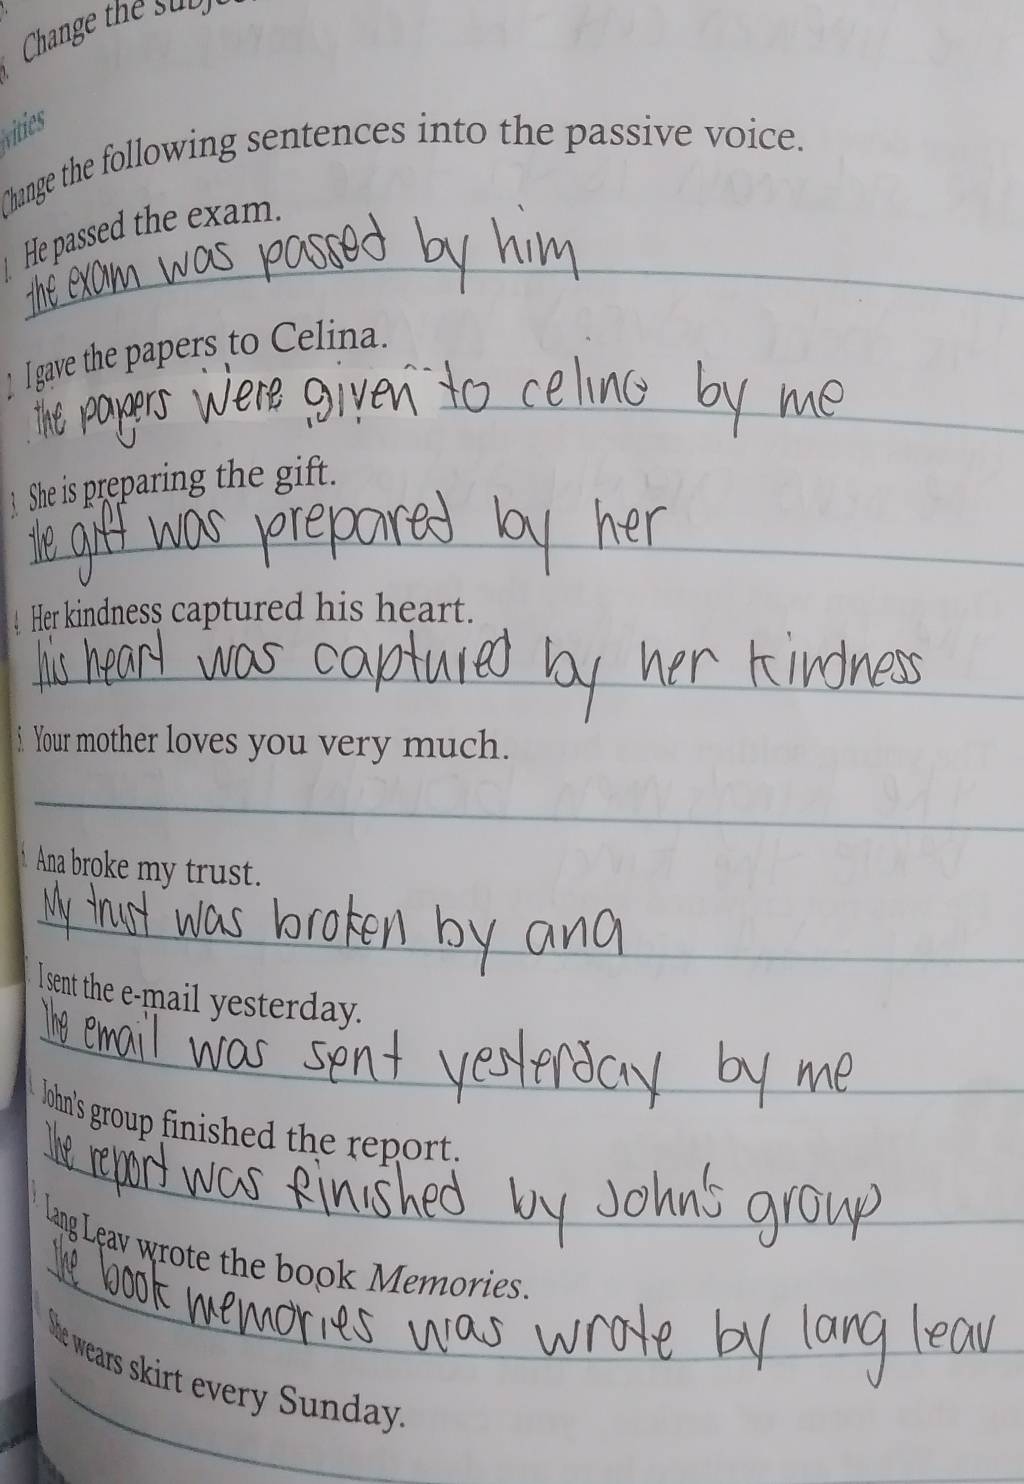 Change the
ivities
Change the following sentences into the passive voice.
1. He passed the exam.
the exam was passed by him
2. I gave the papers to Celina.
the papers were given to celina by me
3. She is preparing the gift.
the gift was prepared by her
4. Her kindness captured his heart.
his heart was captured by her kindness
5. Your mother loves you very much.
Ana broke my trust.
My trust was broken by ana
I sent the e-mail yesterday.
The email was sent yesterday by me
John's group finished the report.
The report was finished by John's group
Lang Leav wrote the book Memories.
The book memories was wrote by lang leav
She wears skirt every Sunday.